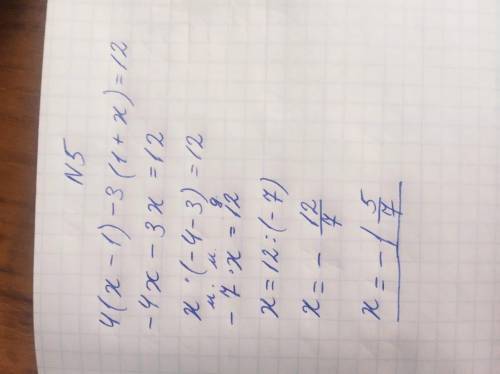 N 5
4(x-1)-3(1+x)=12
-4x-3x=12
x·(-4-3)=12
м. м. д
-7·x=12
x=12:(-7)
x=-12/7
x=-1 5/7